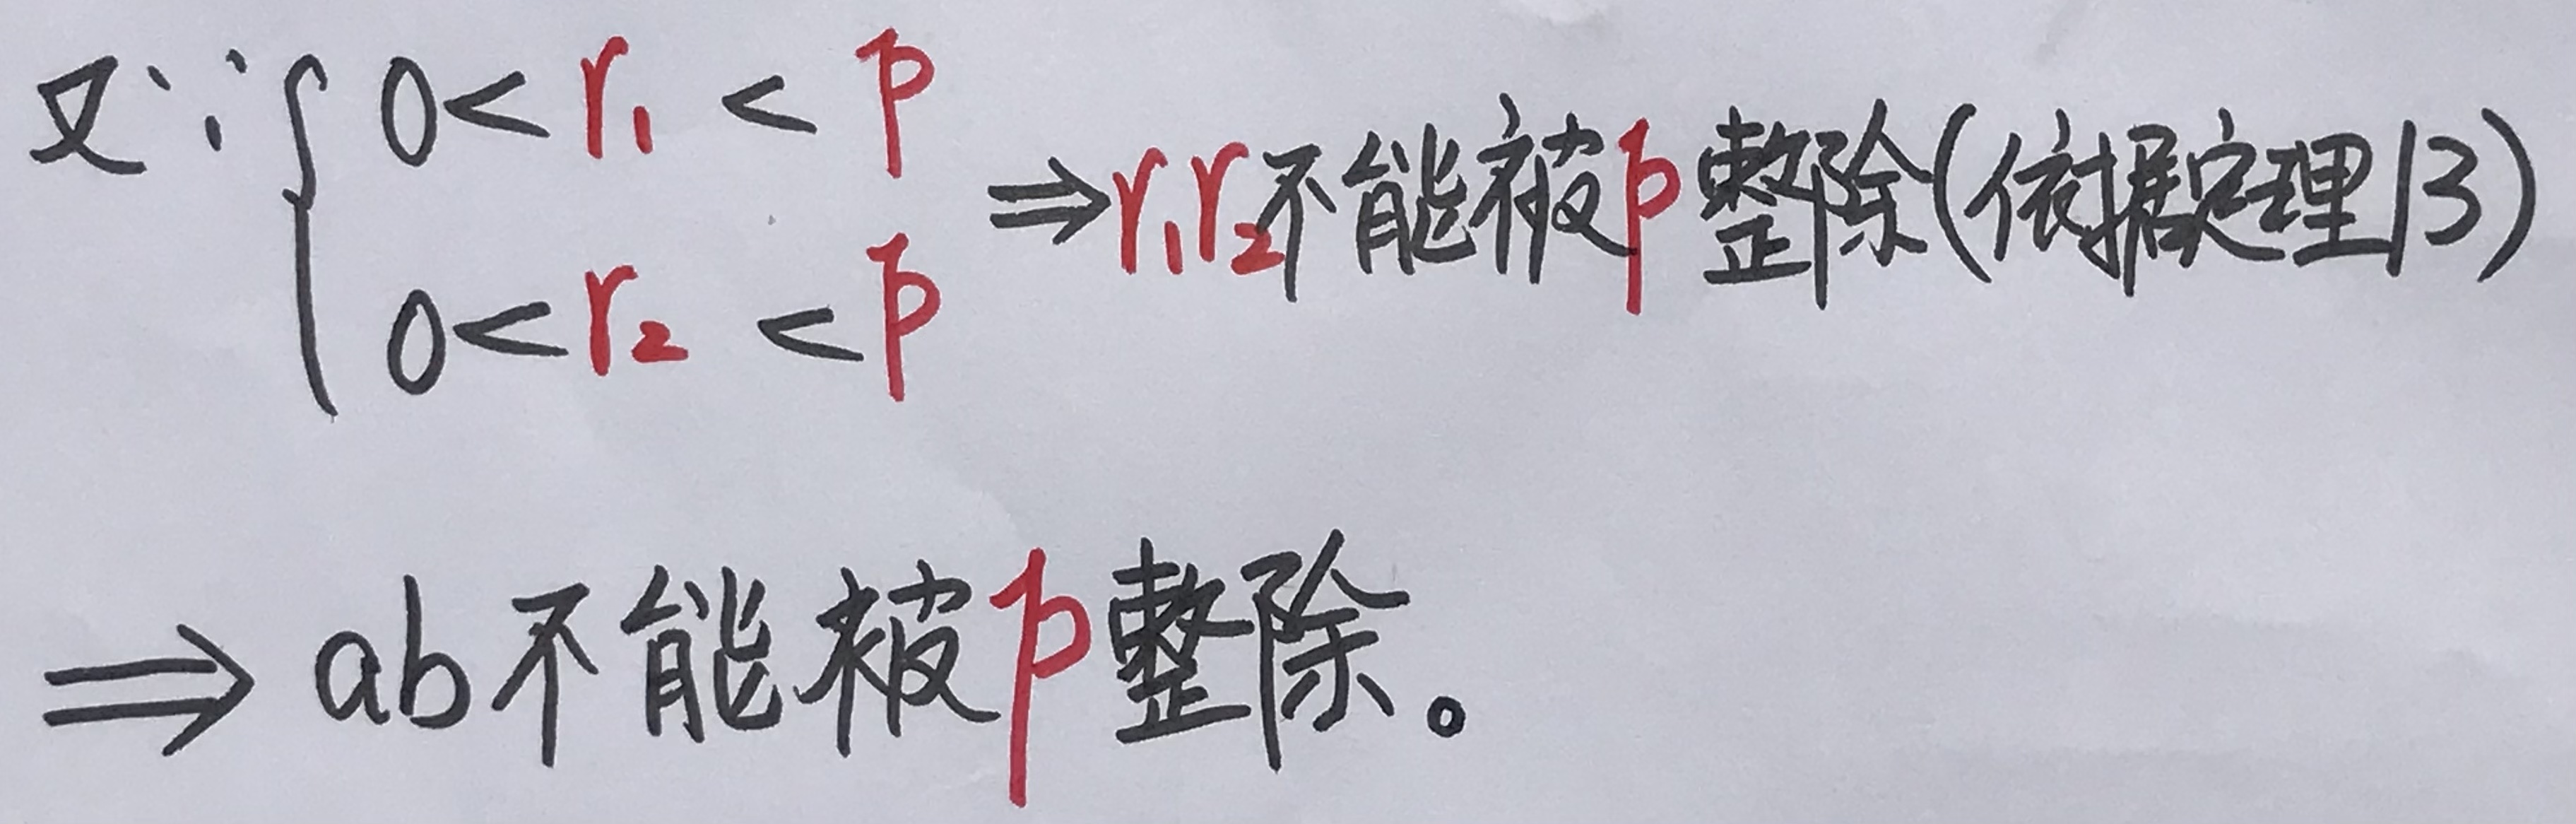 又∵ { 0 < r₁ < p
0 < r₂ < p
⇒ r₁r₂不能被p整除(依据定理13)
⇒ ab不能被p整除。